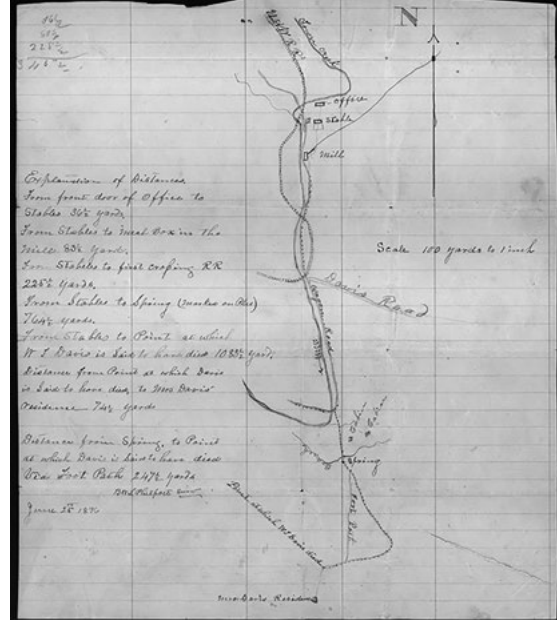 N
Office
Stable
Mill
Explanation of Distances
From front door of Office to
Stables 36½ yards.
From Stables to Meal Box in the
Mill 83½ yards.
From Stables to first crossing RR
225½ yards.
From Stables to Spring (marked on Plat)
764½ yards.
From Stables to Point at which
W T Davis is Said to have died 1033½ yards,
Distance from Point at which Davis
is Said to have died, to Mrs Davis'
residence 74½ yards
Distance from Spring, to Point
at which Davis is Said to have died
Via Foot Path 247½ yards
June 28 1876
Scale 100 yards to 1 inch
Davis Road
Wagon Road
Cabin
Cabin
Spring
Foot Path
Point at which W T Davis died
Mrs Davis Residence